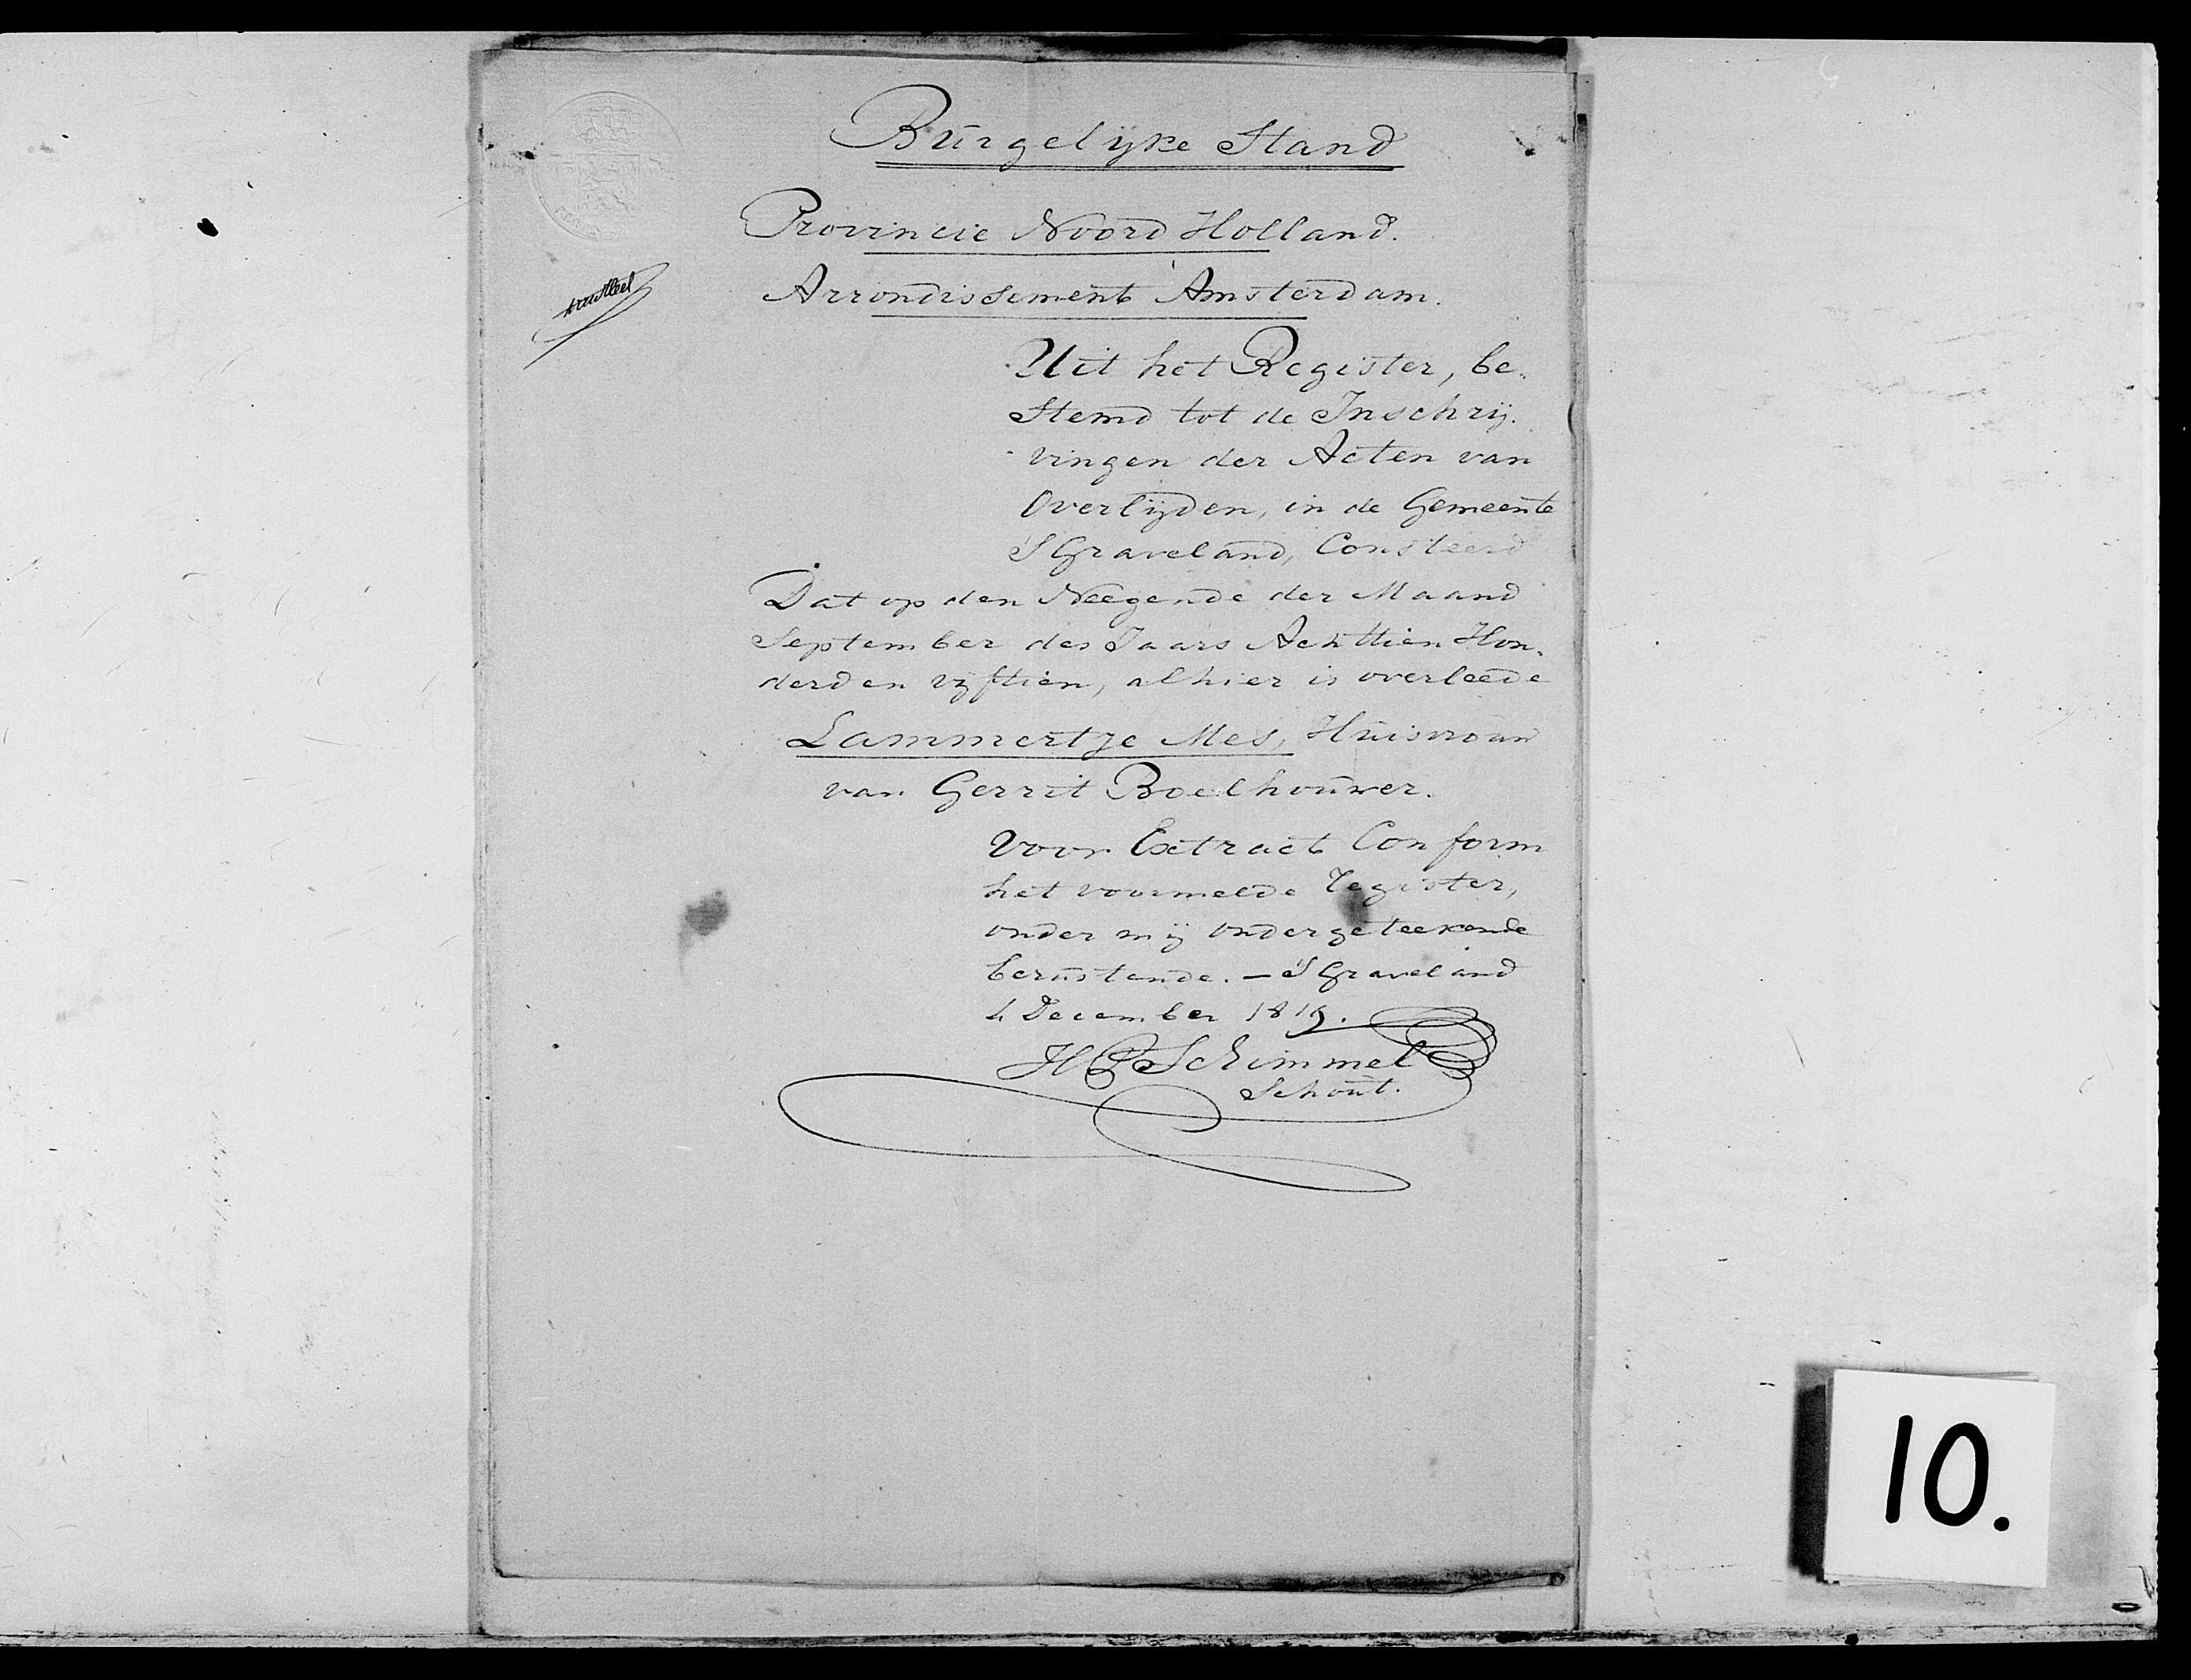 Burgelyke Stand
Provincie Noord Holland.
Arrondissement Amsterdam.
Uit het Register, be-
stemd tot de Inschrij-
vingen der Acten van
Overlijden, in de Gemeente
'S Graveland, Consteerd
Dat op den Neegende der Maand
September des Jaars Achttien Hon-
derd en vijftien, alhier is overleede
Lammertje Mes, Huisvrouw
van Gerrit Boelhouwer.
Voor Extract Conform
het voormelde register,
onder mij ondergeteekende
berustende. — 'S Graveland
4 December 1819.
H Schimmel
Schout.
10.